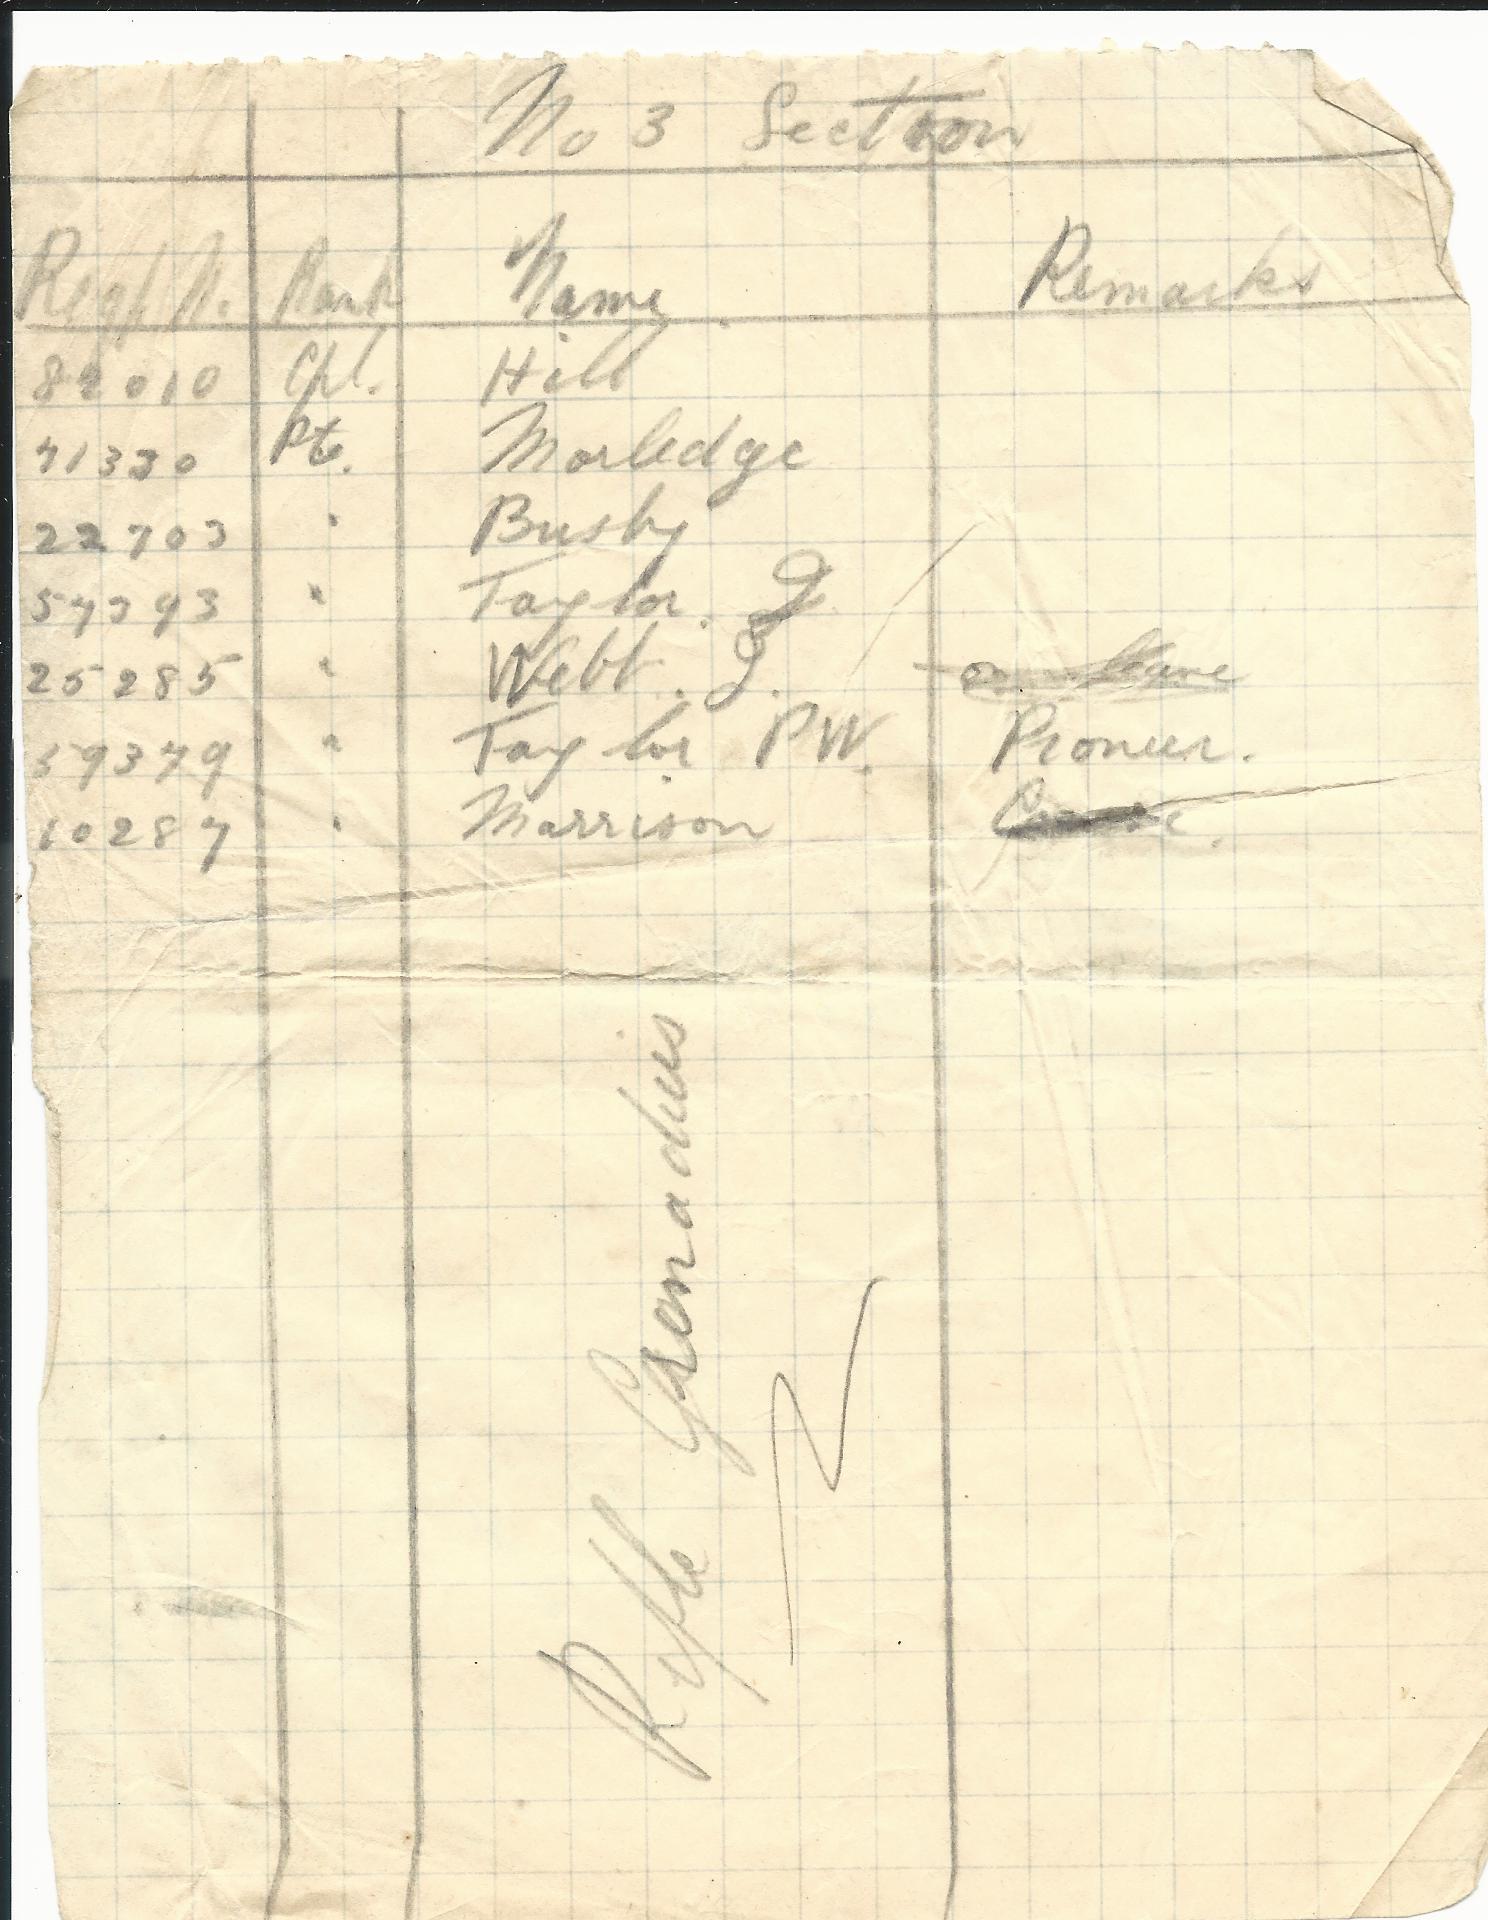 No 3 Section
Regtl N. Rank Name Remarks
82010 Cpl. Hill
71330 Pte. Morledge
22703 " Busby
57793 " Taylor. J
25285 " Webb. J. on leave
59379 " Taylor PW. Pioneer.
10287 " Marrison
Rifle Grenadiers